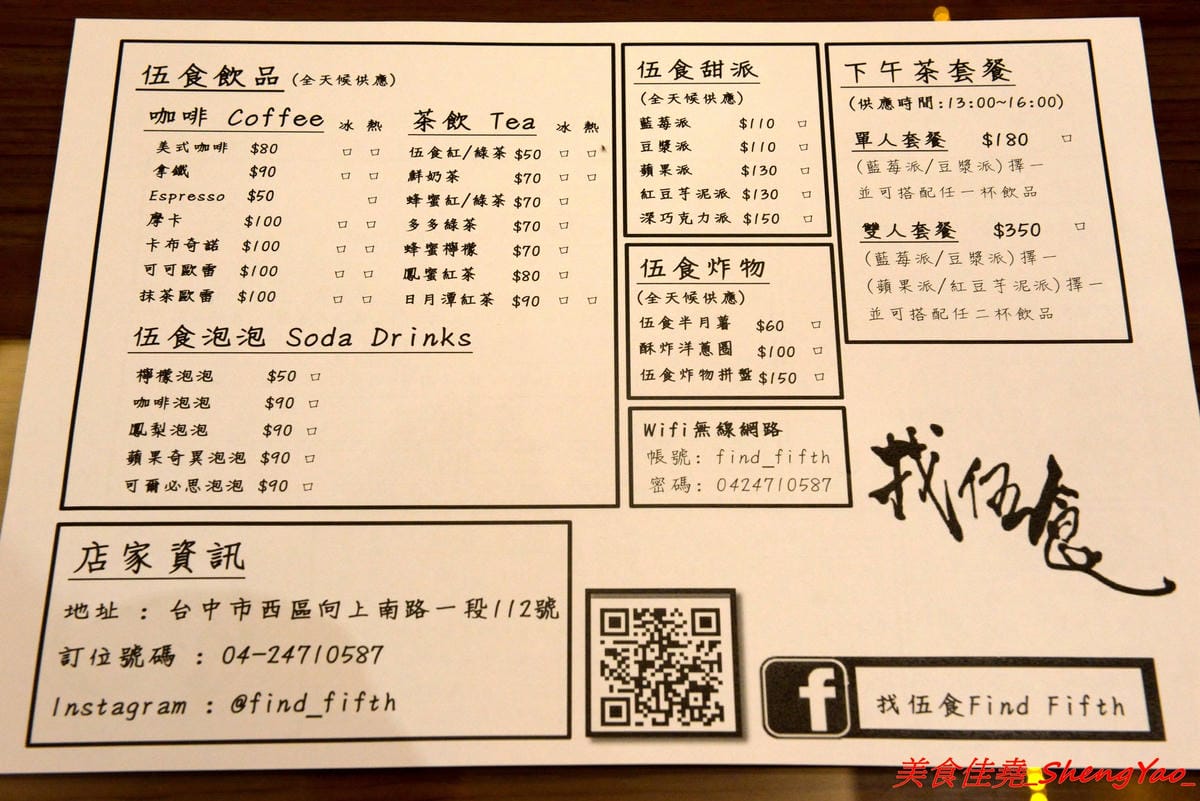 伍食飲品(全天候供應)
咖啡 Coffee 冰 熱
美式咖啡 $80 □ □
拿鐵 $90 □ □
Espresso $50 □
摩卡 $100 □ □
卡布奇諾 $100 □ □
可可歐雷 $100 □ □
抹茶歐雷 $100 □ □
茶飲 Tea 冰 熱
伍食紅/綠茶 $50 □ □
鮮奶茶 $70 □ □
蜂蜜紅/綠茶 $70 □
多多綠茶 $70 □
蜂蜜檸檬 $70 □
鳳蜜紅茶 $80 □
日月潭紅茶 $90 □ □
伍食泡泡 Soda Drinks
檸檬泡泡 $50 □
咖啡泡泡 $90 □
鳳梨泡泡 $90 □
蘋果奇異泡泡 $90 □
可爾必思泡泡 $90 □
伍食甜派
(全天候供應)
藍莓派 $110 □
豆漿派 $110 □
蘋果派 $130 □
紅豆芋泥派 $130 □
深巧克力派 $150 □
伍食炸物
(全天候供應)
伍食半月薯 $60 □
酥炸洋蔥圈 $100 □
伍食炸物拼盤 $150 □
Wifi無線網路
帳號: find_fifth
密碼: 0424710587
下午茶套餐
(供應時間:13:00~16:00)
單人套餐 $180 □
(藍莓派/豆漿派)擇一
並可搭配任一杯飲品
雙人套餐 $350 □
(藍莓派/豆漿派)擇一
(蘋果派/紅豆芋泥派)擇一
並可搭配任二杯飲品
找伍食
店家資訊
地址 : 台中市西區向上南路一段112號
訂位號碼 : 04-24710587
Instagram : @find_fifth
f 找伍食Find Fifth
美食佳堯_ShengYao_